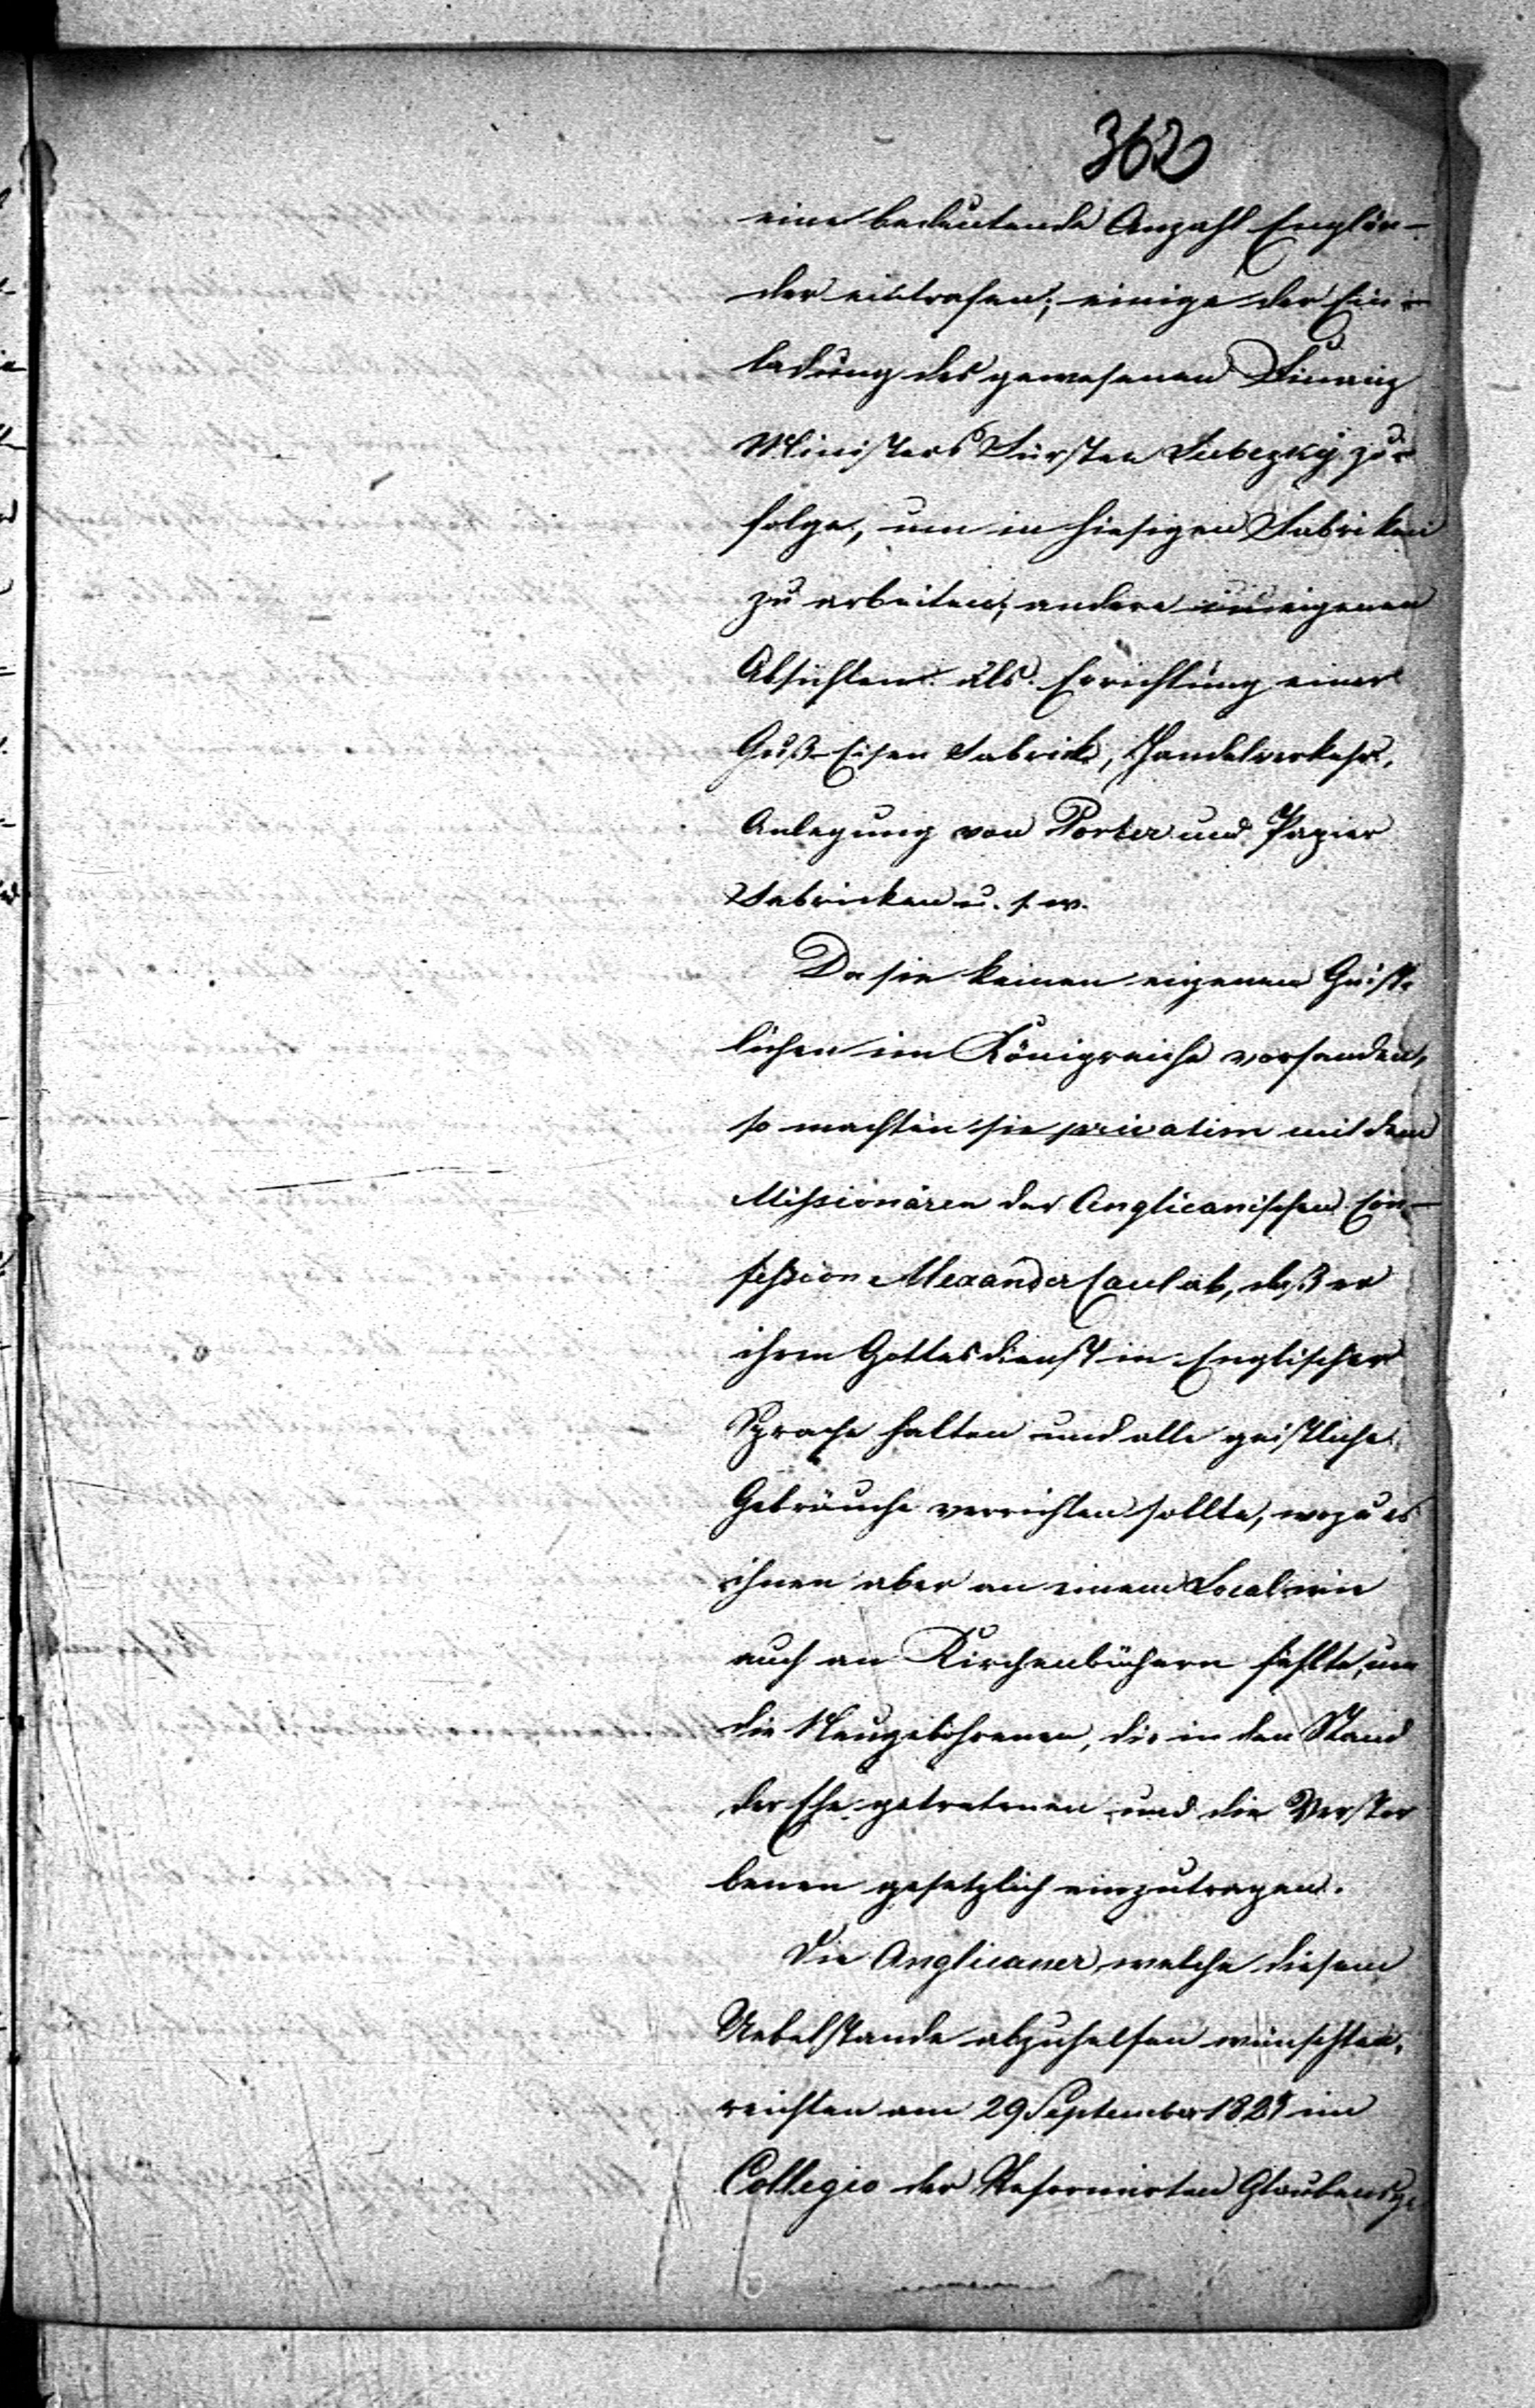 362
eine bedeutende Anzahl Englän-
der eintrafen; einige der Ein-
ladung des gewesenen Finanz
Ministers Fürsten Lubezky zu
folge, um in hiesigen Fabriken
zu arbeiten; andere in eigenen
Absichten als Errichtung einer
Guß-Eisen Fabrick, Handelverkehr,
Anlegung von Porter und Papier
Fabricken u. s. w.
Da sie keinen eigenen Geist-
lichen im Königreiche vorfanden,
so machten sie privatim mit dem
Missionären der Anglicanischen Con-
feßion Alexander Caul ab, daß er
ihren Gottesdienst in Englischer
Sprache halten und alle geistliche
Gebräuche verrichten sollte, wozu es
ihnen aber an einem Local wie
auch an Kirchenbüchern fehlte, um
die Neugebohrenen, die in den Stand
der Ehe getretenen und die Verstor
benen gesetzlich einzutragen.
Die Anglicaner, welche diesem
Uebelstande abzuhelfen wünschten,
reichten am 29 September im
Collegio der Reformirten Glaubensge